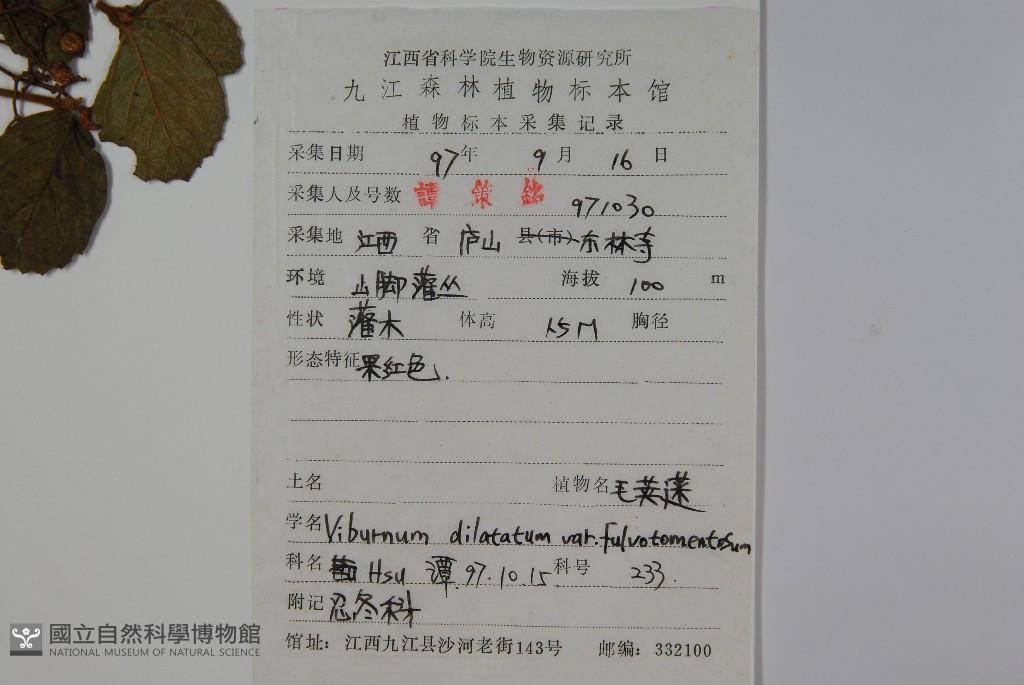 江西省科学院生物资源研究所
九江森林植物标本馆
植物标本采集记录
采集日期 97年 9月 16日
采集人及号数 譚策銘 971030
采集地 江西 省 庐山 县(市) 东林寺
环境 山脚灌丛 海拔 100 m
性状 灌木 体高 1.5M 胸径
形态特征 果红色.
土名 植物名 毛荚蒾
学名 Viburnum dilatatum var. fulvotomentosum
科名 Hsu 潭 97.10.15 科号 233.
附记 忍冬科
馆址: 江西九江县沙河老街143号 邮编: 332100
國立自然科學博物館
NATIONAL MUSEUM OF NATURAL SCIENCE